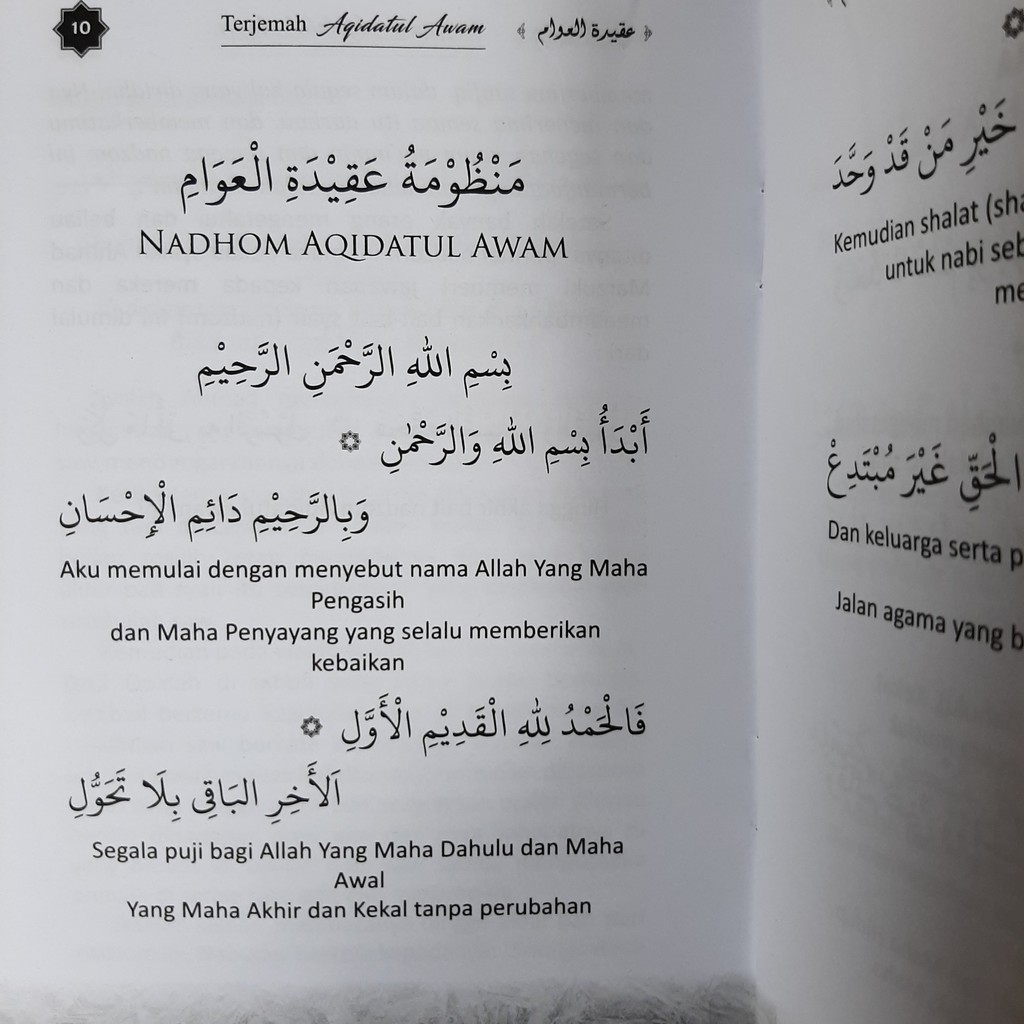 10
Terjemah Aqidatul Awam ﴿ عقيدة العوام ﴾
مَنْظُوْمَةُ عَقِيْدَةِ الْعَوَامِ
NADHOM AQIDATUL AWAM
بِسْمِ اللهِ الرَّحْمَنِ الرَّحِيْمِ
أَبْدَأُ بِسْمِ اللهِ وَالرَّحْمٰنِ ۞
وَبِالرَّحِيْمِ دَائِمِ الْإِحْسَانِ
Aku memulai dengan menyebut nama Allah Yang Maha
Pengasih
dan Maha Penyayang yang selalu memberikan
kebaikan
فَالْحَمْدُ لِلهِ الْقَدِيْمِ الْأَوَّلِ ۞
اَلْأَخِرِ البَاقِى بِلَا تَحَوُّلِ
Segala puji bagi Allah Yang Maha Dahulu dan Maha
Awal
Yang Maha Akhir dan Kekal tanpa perubahan
خَيْرِ مَنْ قَدْ وَحَّدَ
Kemudian shalat (sha
untuk nabi seb
me
الْحَقِّ غَيْرَ مُبْتَدِعْ
Dan keluarga serta p
Jalan agama yang b